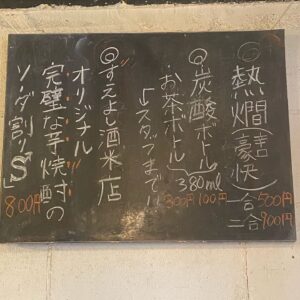 ◎熱燗(豪快)
一合 500円
二合 900円
◎炭酸ボトル
380ml 100円
お茶ボトル 300円
↳スタッフまで!!
◎すえよし酒米店
オリジナル
完璧な芋焼酎の
ソーダ割り"S" 800円